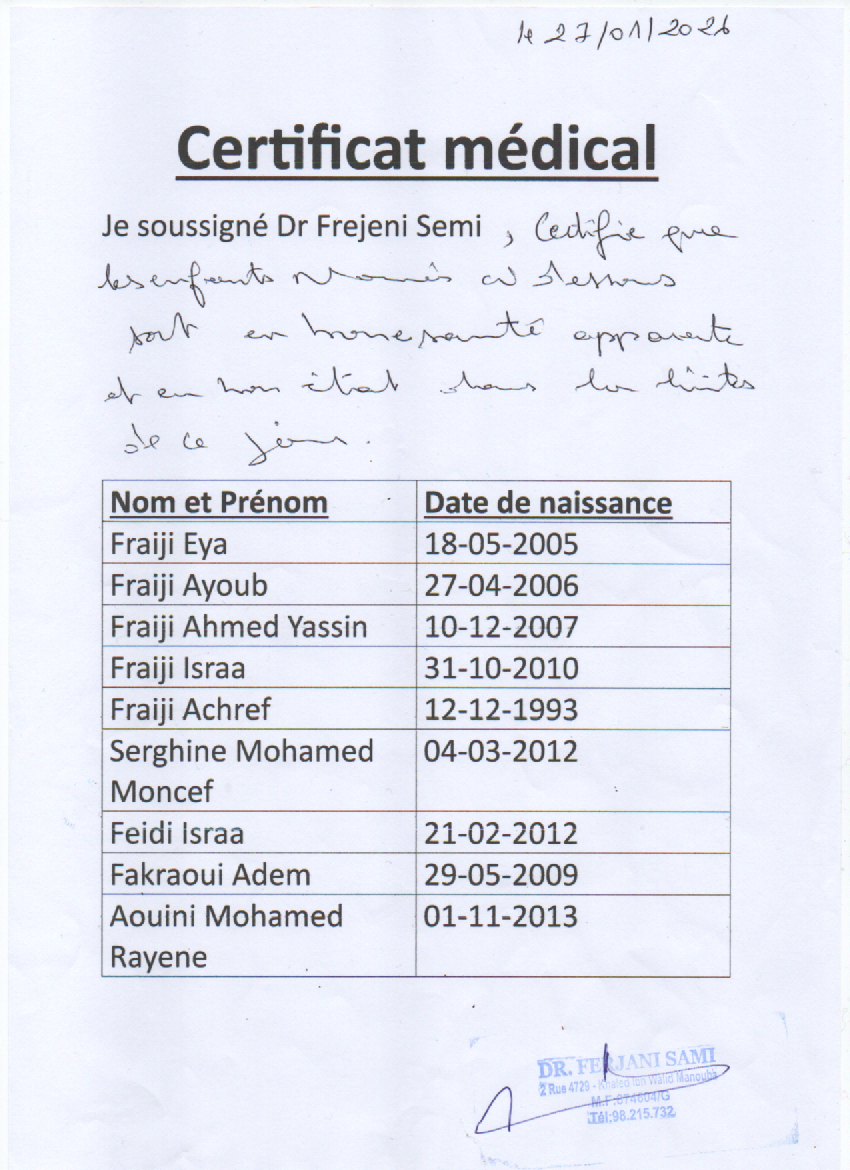 le 27/01/2026
Certificat médical
Je soussigné Dr Frejeni Semi , Certifie que
les enfants Només ci dessous
sont en bonne santé apparente
et en bon état dans les limites
de ce jour.
Nom et Prénom Date de naissance
Fraiji Eya 18-05-2005
Fraiji Ayoub 27-04-2006
Fraiji Ahmed Yassin 10-12-2007
Fraiji Israa 31-10-2010
Fraiji Achref 12-12-1993
Serghine Mohamed 04-03-2012
Moncef
Feidi Israa 21-02-2012
Fakraoui Adem 29-05-2009
Aouini Mohamed 01-11-2013
Rayene
DR. FERJANI SAMI
2 Rue 4729 - Khaled Ibn Walid Manouba
M.F:674604/G
Tél:98.215.732